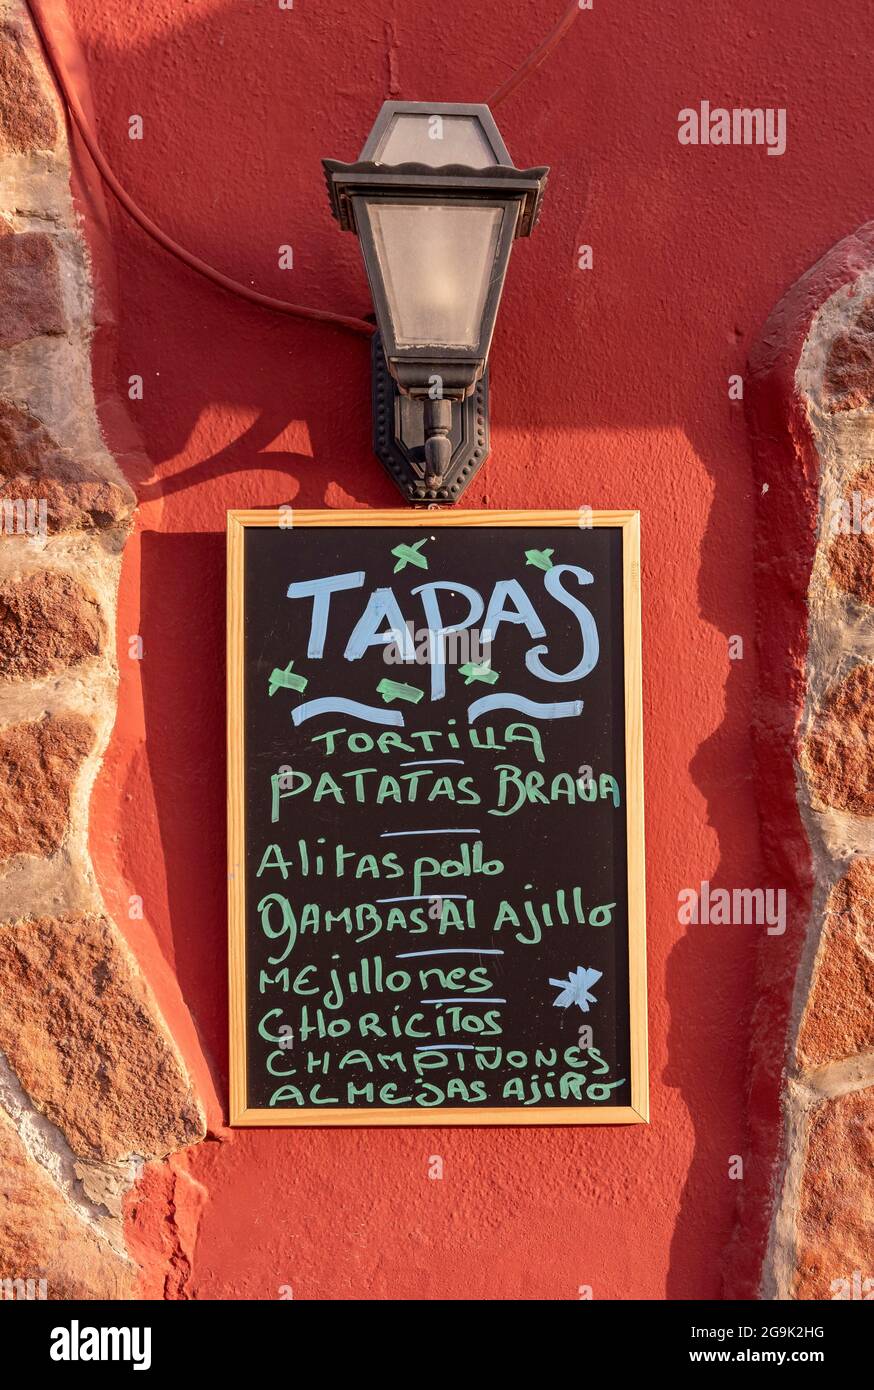 TAPAS
TORTILLA
PATATAS BRAVA
Alitas pollo
gAMBAS Al Ajillo
MEjillones
CHORICITOS
CHAMPIÑONES
ALMEJAS AJIRO
alamy
Image ID: 2G9K2HG
www.alamy.com